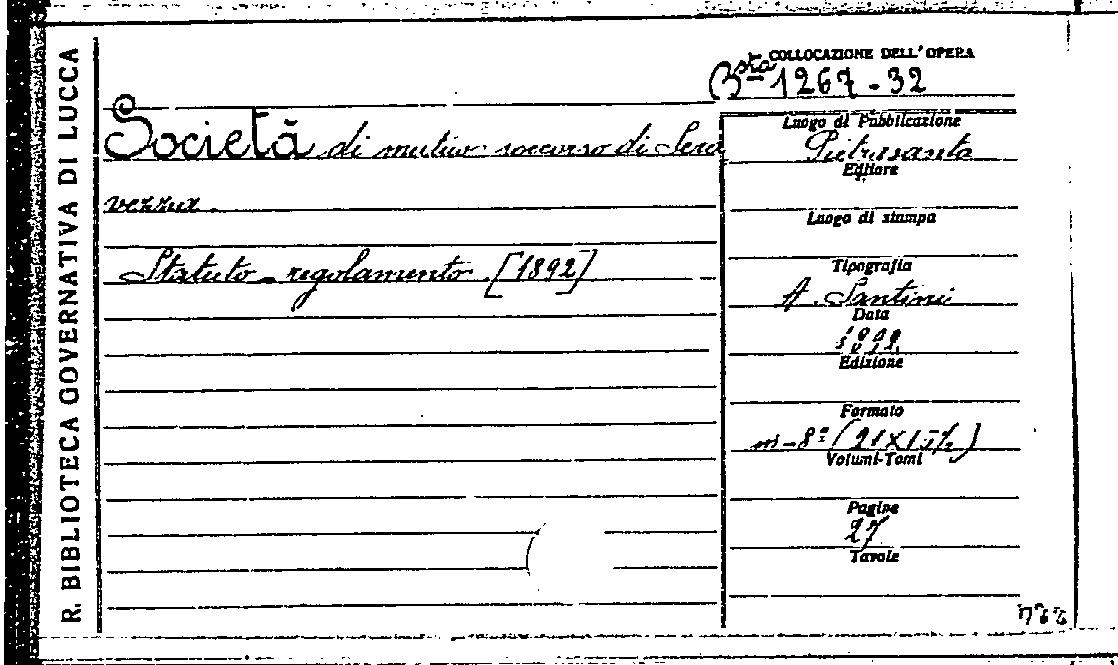 R. BIBLIOTECA GOVERNATIVA DI LUCCA
COLLOCAZIONE DELL'OPERA
Bsta 1267 - 32
Società di mutuo soccorso di Sera
vezza.
Statuto-regolamento [1892]
Luogo di Pubblicazione
Pietrasanta
Editore
Luogo di stampa
Tipografia
A. Santini
Data
1892
Edizione
Formato
in-8º (21X15½)
Volumi-Tomi
Pagine
27
Tavole